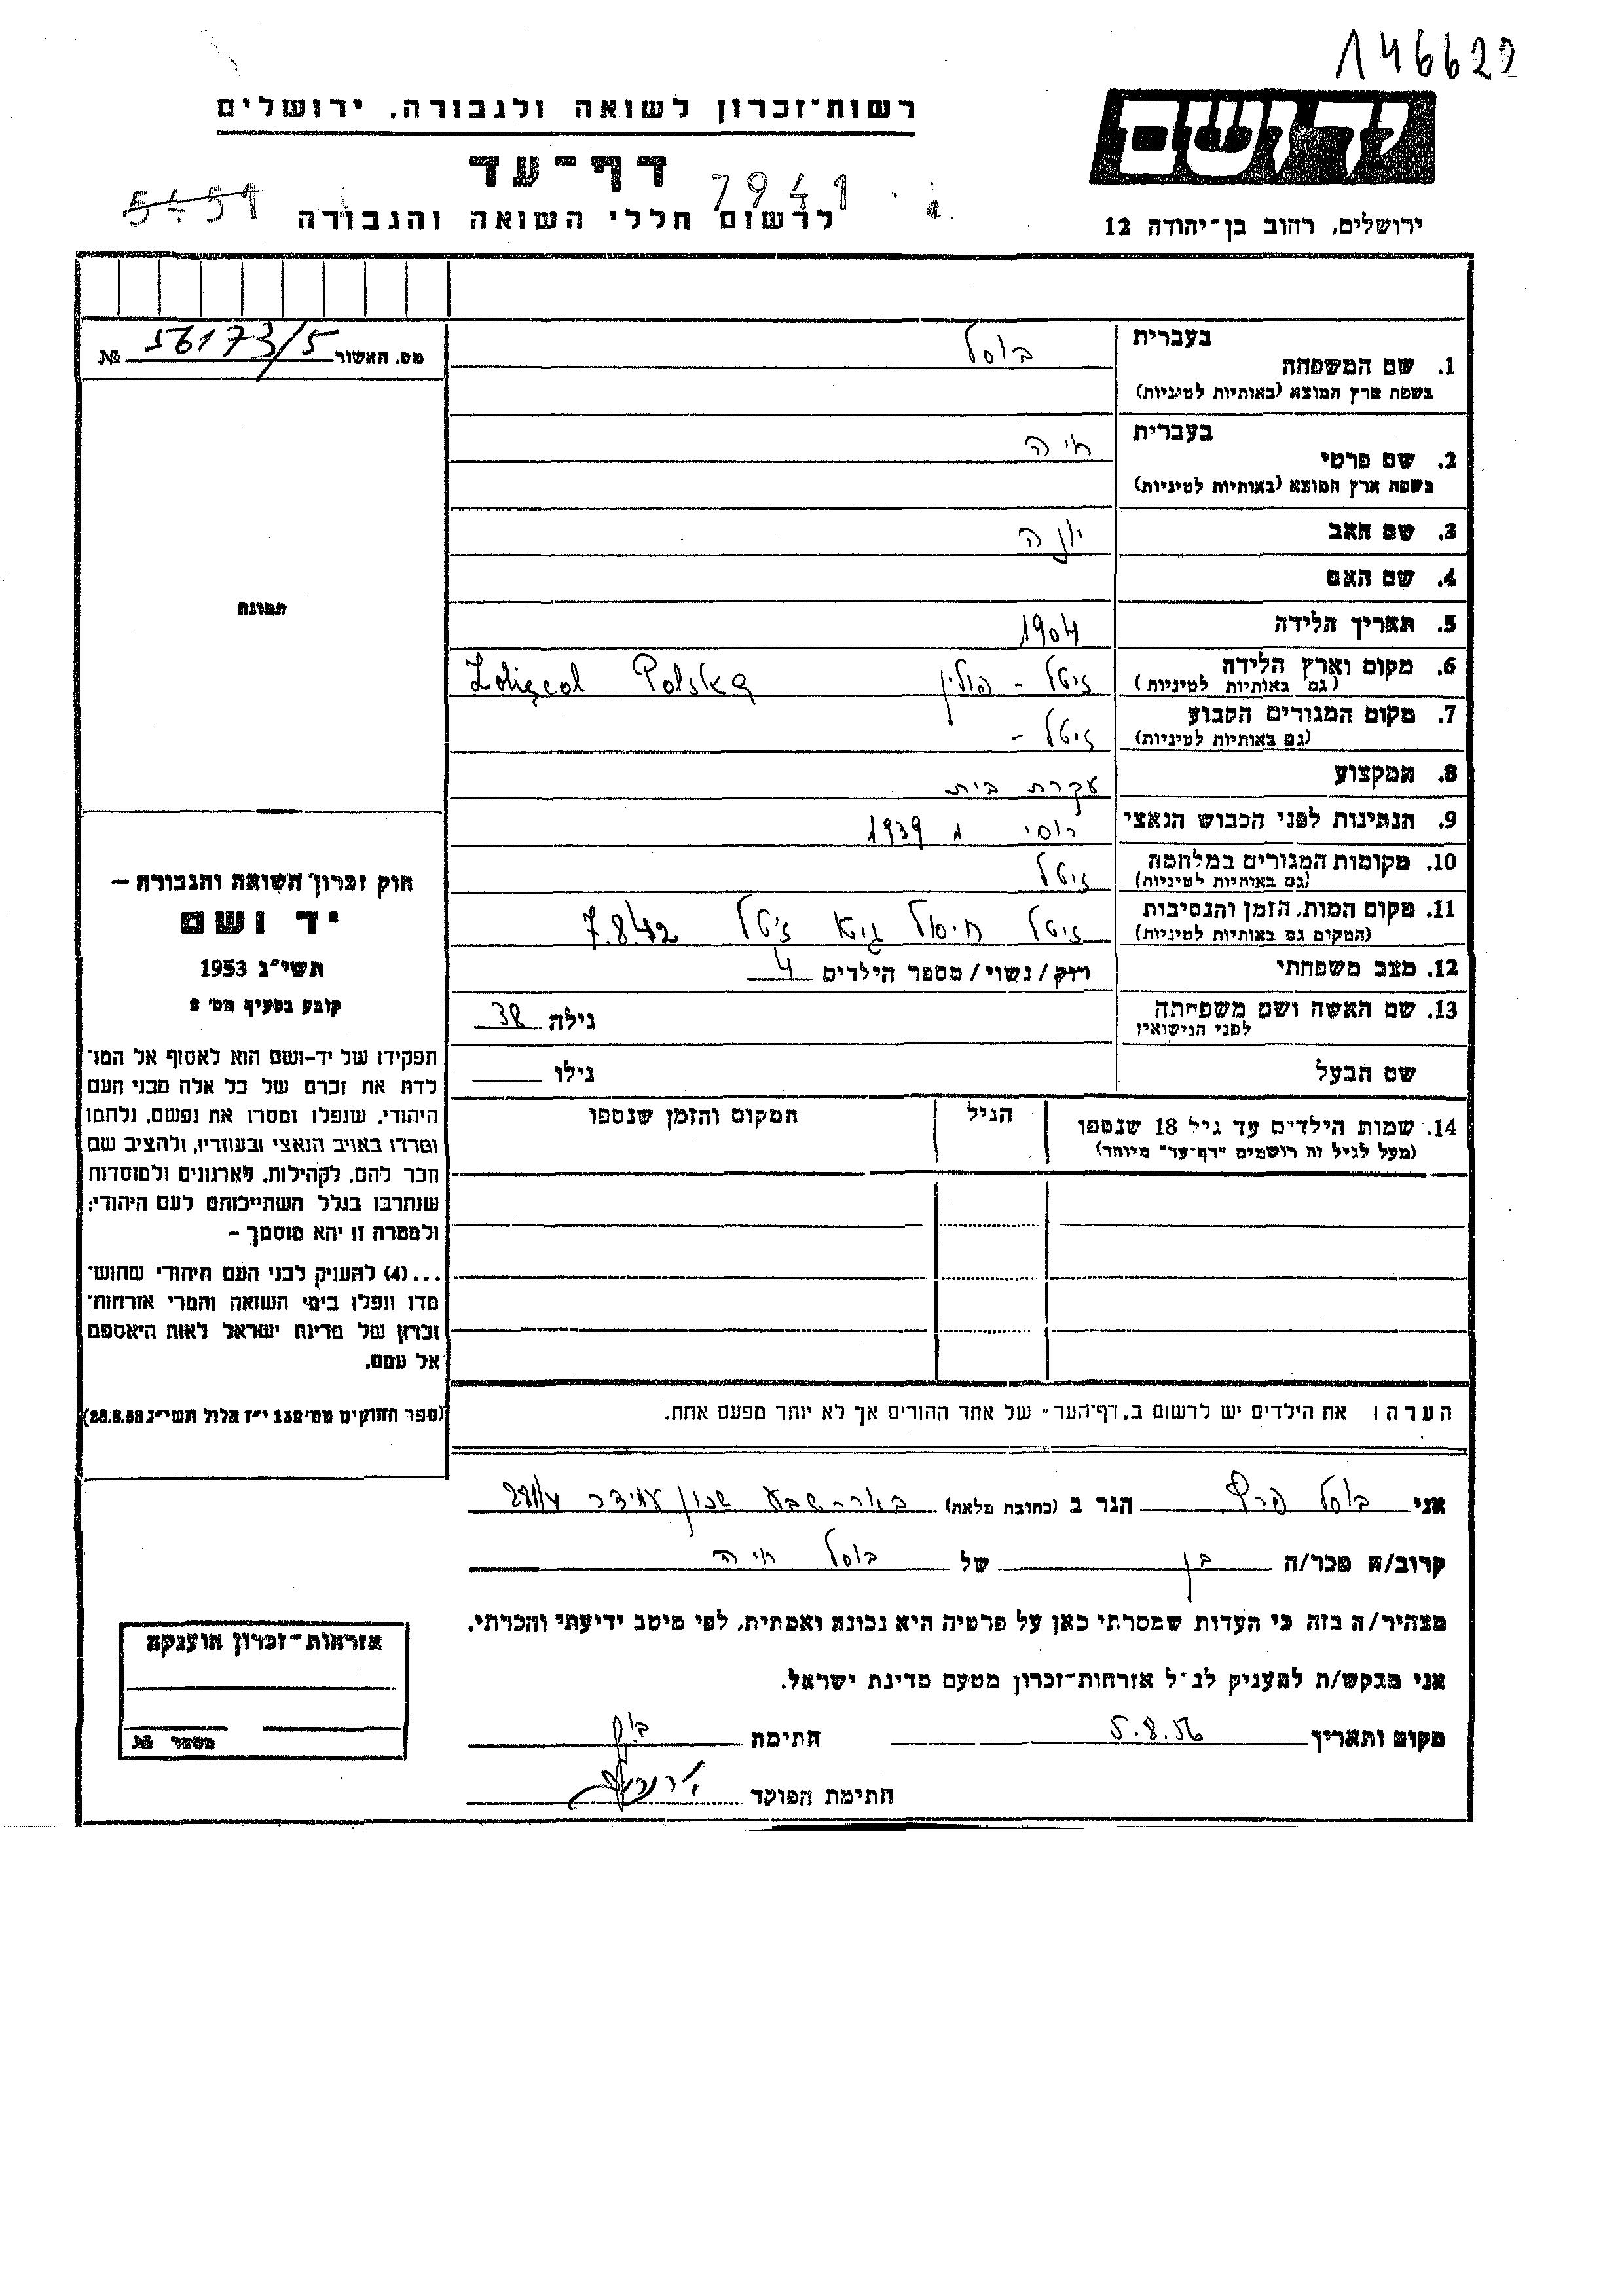 146622
רשות־זכרון לשואה ולגבורה, ירושלים
יד ושם
דף־עד
7941
5451
לרשום חללי השואה והגבורה
ירושלים, רחוב בן־יהודה 12
מס. האשור 56173/5 №
בעברית
1. שם המשפחה
בוסל
בשפת ארץ המוצא (באותיות לטיניות)
בעברית
2. שם פרטי
חיה
בשפת ארץ המוצא (באותיות לטיניות)
3. שם האב
יונה
4. שם האם
5. תאריך הלידה
1904
6. מקום וארץ הלידה
(גם באותיות לטיניות)
זיטל - פולין Polska
7. מקום המגורים הקבוע
(גם באותיות לטיניות)
זיטל -
8. המקצוע
עקרת בית
9. הנתינות לפני הכבוש הנאצי
רוסי מ 1939
10. מקומות המגורים במלחמה
(גם באותיות לטיניות)
זיטל
11. מקום המות, הזמן והנסיבות
(המקום גם באותיות לטיניות)
זיטל חיסול גיטו זיטל 7.8.42
12. מצב משפחתי
רוק/נשוי/מספר הילדים 4
13. שם האשה ושם משפחתה
לפני הנישואין
גילה 38
שם הבעל
גילו
14. שמות הילדים עד גיל 18 שנספו
(מעל לגיל זה רושמים "דף־עד" מיוחד)
הגיל
המקום והזמן שנספו
הערה: את הילדים יש לרשום ב„דף־העד" של אחד ההורים אך לא יותר מפעם אחת.
תמונה
חוק זכרון השואה והגבורה –
יד ושם
תשי״ג 1953
קובע בסעיף מס׳ 2
תפקידו של יד-ושם הוא לאסוף אל המו־
לדת את זכרם של כל אלה מבני העם
היהודי, שנפלו ומסרו את נפשם, נלחמו
ומרדו באויב הנאצי ובעוזריו, ולהציב שם
וזכר להם, לקהילות, לארגונים ולמוסדות
שנחרבו בגלל השתייכותם לעם היהודי;
ולמטרה זו יהא מוסמך –
...(4) להעניק לבני העם היהודי שהוש־
מדו ונפלו בימי השואה והמרי אזרחות־
זכרון של מדינת ישראל לאות היאספם
אל עמם.
(ספר החוקים מס׳ 132 י״ז אלול תשי״ג 28.8.53)
אני בוסל הגר ב (כתובת מלאה) באר-שבע שכון עמידר
קרוב/ה מכר/ה בן של בוסל חיה
מצהיר/ה בזה כי העדות שמסרתי כאן על פרטיה היא נכונה ואמתית, לפי מיטב ידיעתי והכרתי.
אני מבקש/ת להעניק לנ״ל אזרחות־זכרון מטעם מדינת ישראל.
מקום ותאריך 5.8.56 חתימה
חתימת הפוקד
אזרחות־זכרון הוענקה
מספר №